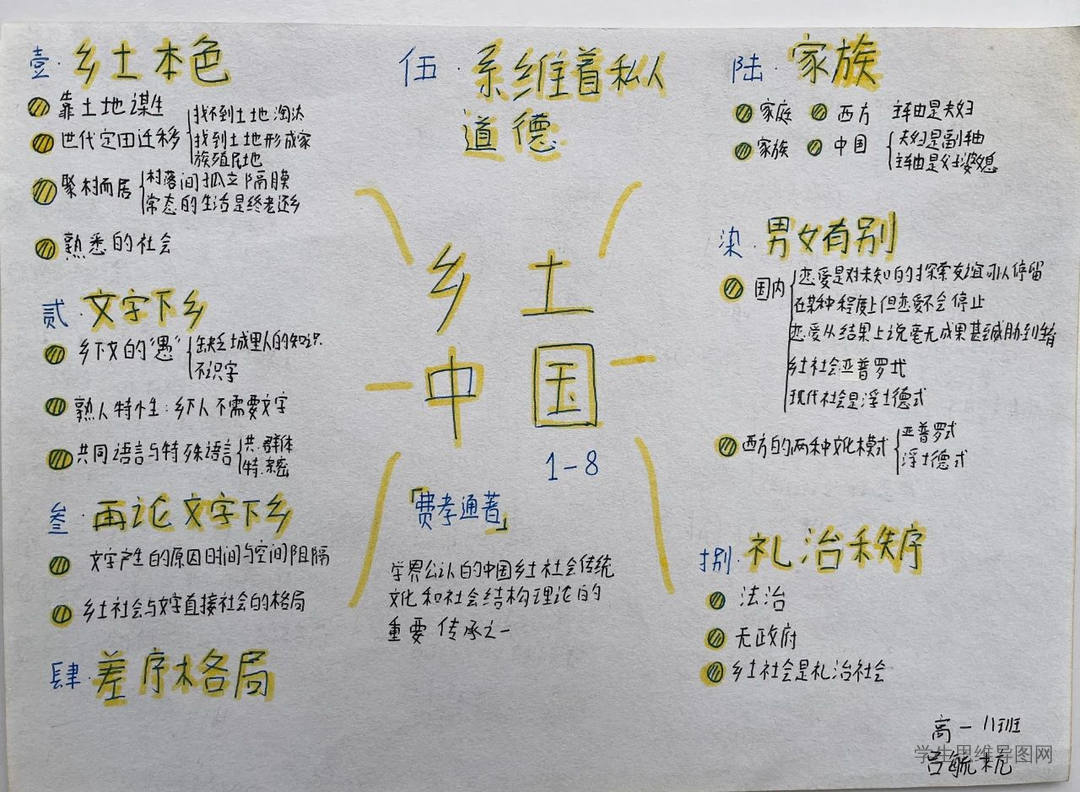 壹·乡土本色
靠土地谋生
世代定田迁移
找不到土地 淘汰
找到土地形成家
族殖民地
聚村而居
村落间孤立隔膜
常态的生活是终老还乡
熟悉的社会
贰·文字下乡
乡下文的“愚”
缺乏城里人的知识
不识字
熟人特性:乡下人不需要文字
共同语言与特殊语言
共:群体
特:亲密
叁·再论文字下乡
文字产生的原因时间与空间阻隔
乡土社会与文字直接社会的格局
肆·差序格局
伍·系维着私人
道德
乡土
中国
1-8
「费孝通著」
学界公认的中国乡土社会传统
文化和社会结构理论的
重要传承之一
陆·家族
家庭
西方
主轴是夫妇
家族
中国
夫妇是副轴
主轴是父子婆媳
染·男女有别
国内
恋爱是对未知的探索友谊可以停留
在某种程度上但恋爱不会停止
恋爱从结果上说毫无成果甚威胁到
乡土社会亚普罗式
现代社会是浮士德式
西方的两种文化模式
亚普罗式
浮士德式
捌·礼治秩序
法治
无政府
乡土社会是礼治社会
高一 11班
学生思维导图网